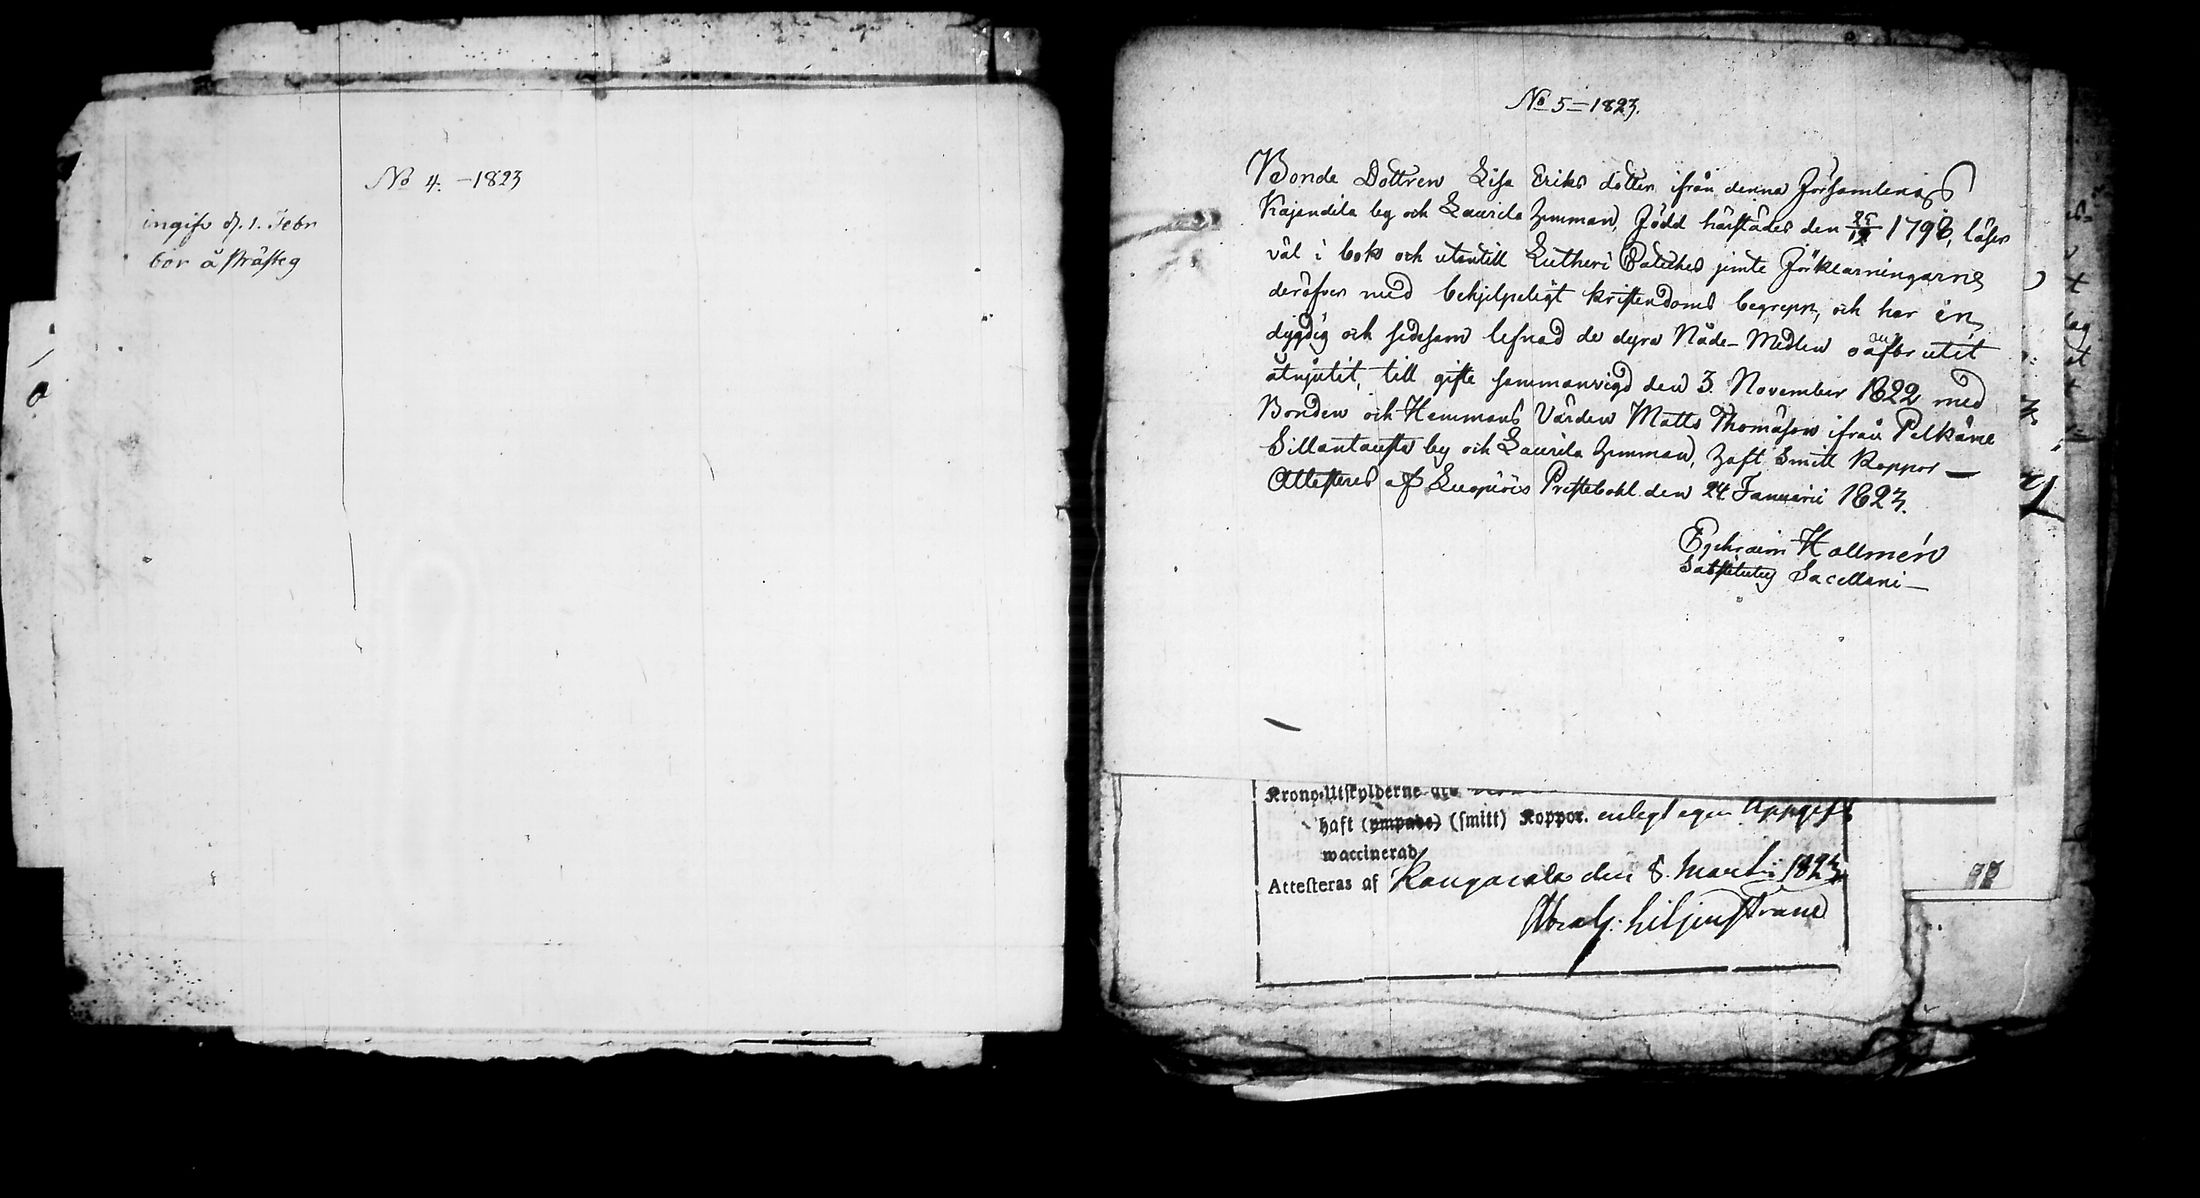 No 4. - 1823
ingifv d. 1. Febr
bor å
No 5 - 1823.
Bonde Dottren Lisa Eriks dotter ifrån denna Församlings
Kajendila by och Laurila Hemman, Född härstädes den 1798, läser
väl i bok och utantill Lutheri Catches jemte Förklarningarne
deröfver med behjelpeligt kristendoms begrepp, och har en
dygdig och sedesam lefnad de dyra Nåde-Medlen oafbrutit
åtnjutit, till gifte sammanvigd den 3. November 1822 med
Bonden och Hemmans Värden Matts Thomasson ifrån Pelkäne
Sillantausta by och Laurila Hemman, haft Smitt Koppor —
Attesteras af Luopiois Prestebohl den 24 Januarii 1823.
Ephraim Hallmén
Substitutus Sacellani —
Krono-Utskylderne
haft (ympade) (smitt) Koppor. enligt egen Uppgift
vaccinerad
Attesteras af Kangasala den 8. Martii 1823
Abrah: Liljenstrand